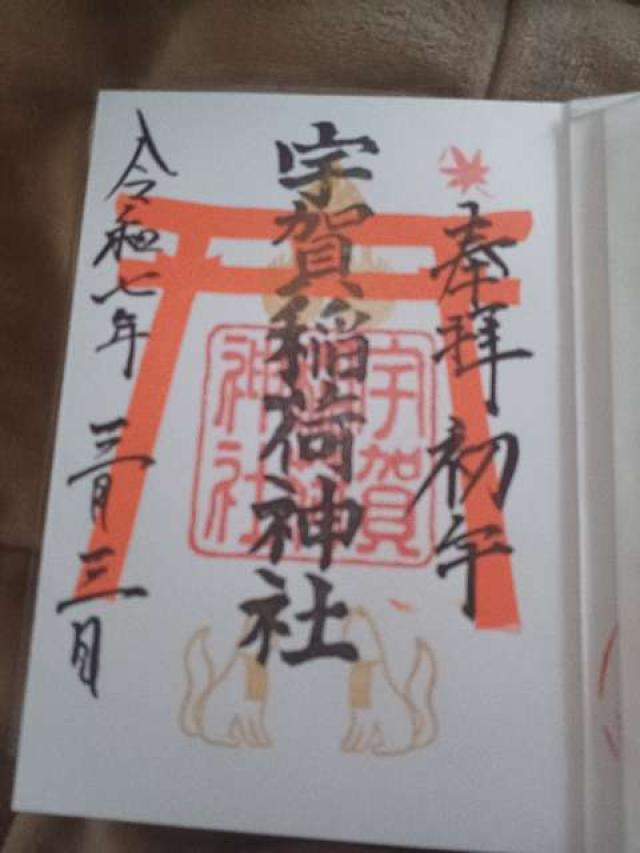 奉拝 初午
宇賀稲荷神社
令和七年 三月 三日
宇賀
稲荷
神社